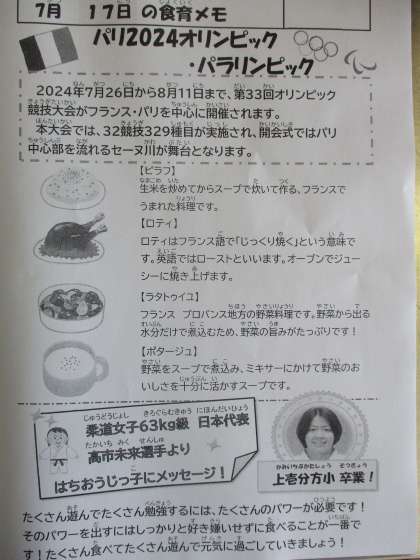 7月　１７日 の食育メモ
パリ2024オリンピック
・パラリンピック
2024年7月26日から8月11日まで、第33回オリンピック
競技大会がフランス・パリを中心に開催されます。
本大会では、32競技329種目が実施され、開会式ではパリ
中心部を流れるセーヌ川が舞台となります。
【ピラフ】
生米を炒めてからスープで炊いて作る、フランスで
うまれた料理です。
【ロティ】
ロティはフランス語で「じっくり焼く」という意味で
す。英語ではローストといいます。オーブンでジュー
シーに焼き上げます。
【ラタトゥイユ】
フランス　プロバンス地方の野菜料理です。野菜から出る
水分だけで煮込むため、野菜の旨みがたっぷりです！
【ポタージュ】
野菜をスープで煮込み、ミキサーにかけて野菜のお
いしさを十分に活かすスープです。
柔道女子63kg級 日本代表
高市未来選手より
はちおうじっ子にメッセージ！
上壱分方小 卒業！
たくさん遊んでたくさん勉強するには、たくさんのパワーが必要です！
そのパワーを出すにはしっかりと好き嫌いせずに食べることが一番で
す！たくさん食べてたくさん遊んで元気に過ごしていきましょう！